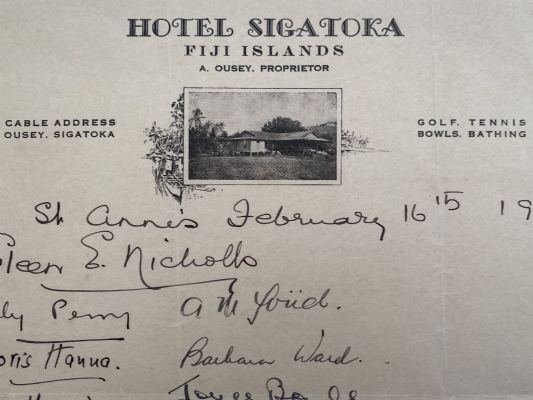 HOTEL SIGATOKA
FIJI ISLANDS
A. OUSEY, PROPRIETOR
CABLE ADDRESS
OUSEY, SIGATOKA
GOLF. TENNIS
BOWLS. BATHING
St Anne's February 16 '15 19
leen E. Nicholls
ly Perry
A M
oris Hanna.
Barbara Ward.
Joyce